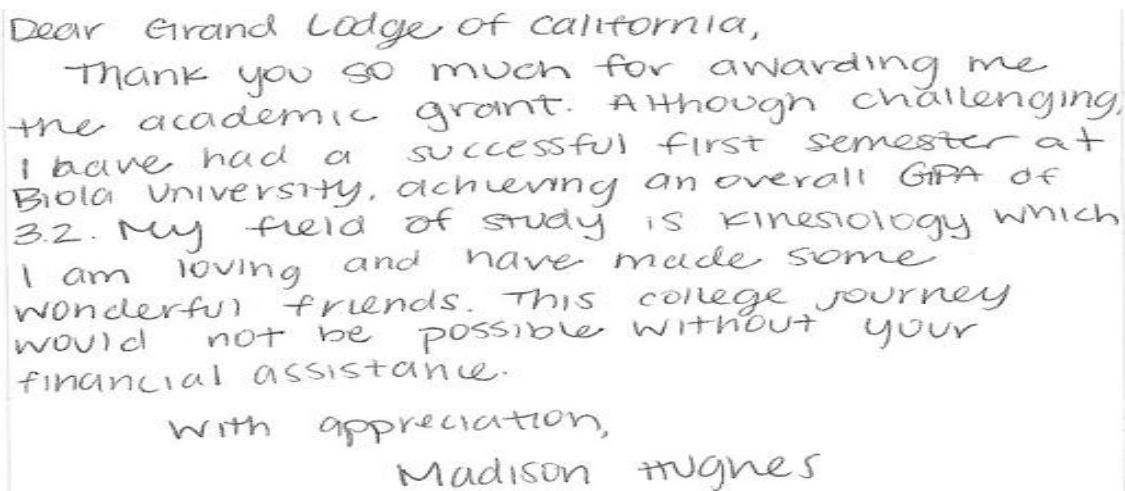 Dear Grand Lodge of California,
Thank you so much for awarding me
the academic grant. Although challenging,
I have had a successful first semester at
Biola University, achieving an overall GPA of
3.2. My field of study is Kinesiology which
I am loving and have made some
wonderful friends. This college journey
would not be possible without your
financial assistance.
With appreciation,
Madison Hughes